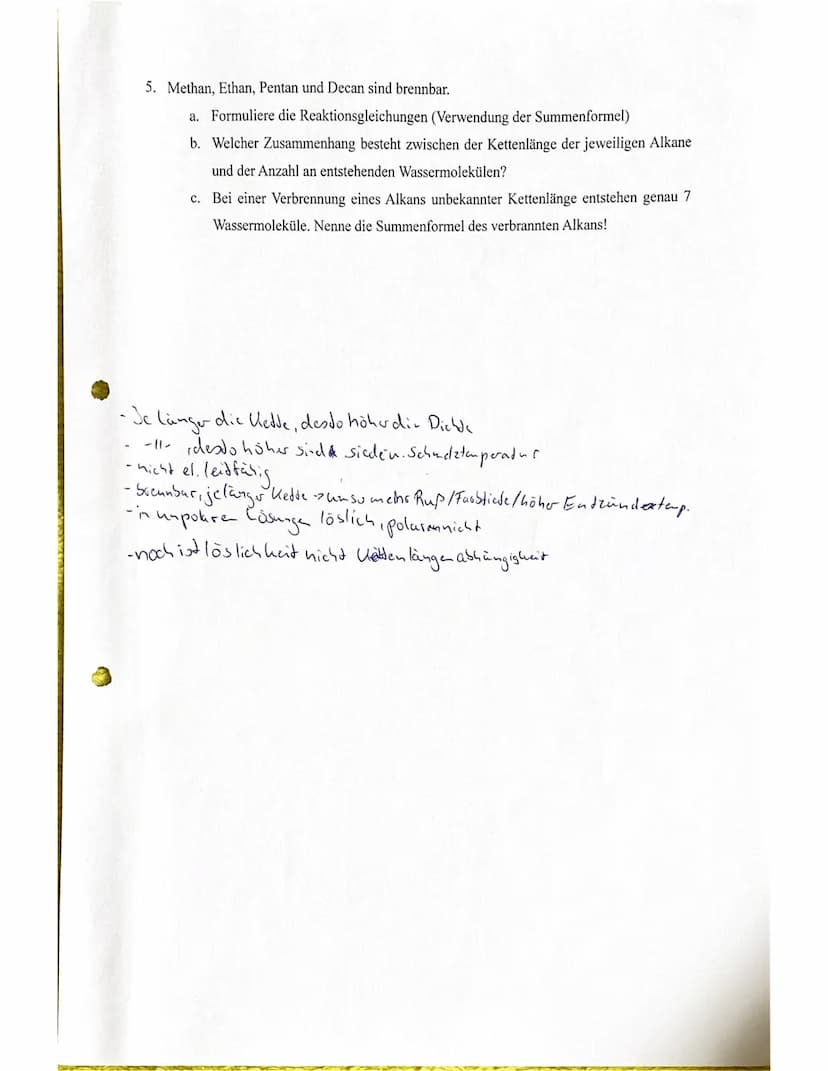 5. Methan, Ethan, Pentan und Decan sind brennbar.
a. Formuliere die Reaktionsgleichungen (Verwendung der Summenformel)
b. Welcher Zusammenhang besteht zwischen der Kettenlänge der jeweiligen Alkane
und der Anzahl an entstehenden Wassermolekülen?
c. Bei einer Verbrennung eines Alkans unbekannter Kettenlänge entstehen genau 7
Wassermoleküle. Nenne die Summenformel des verbrannten Alkans!
- Je länger die Kette, desto höher die Dichte
- -11- , desto höher sind siede u. Schmelztemperatur
- nicht el. leitfähig
- brennbar, je länger Kette -> umso mehr Ruß/Farbtiefe/höher Entzündertemp.
- in unpolaren Lösungen löslich, polaren nicht
- noch ist löslichkeit nicht Kettenlängenabhängigkeit